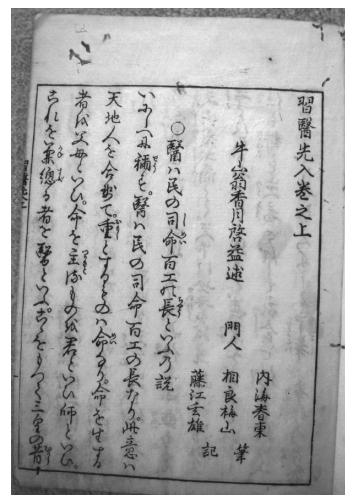 習醫先入巻之上
牛山翁香月啓益述 門人
内海春東
相良梅山 筆
藤江玄雄 記
○醫ハ民の司命百工の長といふの説
いにしへに稱す。醫ハ民の司命百工の長なり。此意ハ
天地人を合せて。重とするものハ命なり。命を生する
者を父母といひ。命を主るものを君といひ師といひ。
これを兼總る者を醫といふ。